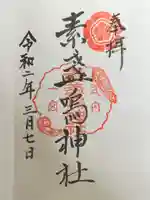 奉拝
素盞嗚神社
令和二年三月七日